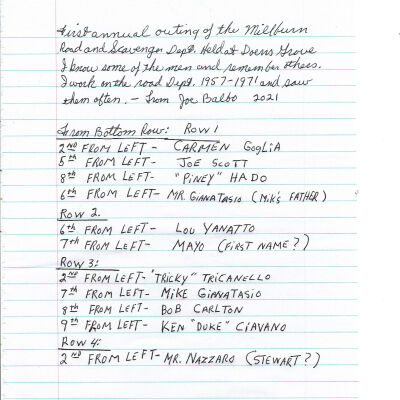 First annual outing of the Millburn
Road and Scavenger Dept. Held at Doerrs Grove
I know some of the men and remember others.
I work on the road Dept. 1957-1971 and saw
them often. - From Joe Balbo 2021
From Bottom Row: Row 1
2ND FROM LEFT - CARMEN GOGLIA
5th FROM LEFT - JOE SCOTT
8th FROM LEFT - "PINEY" HADO
6th FROM LEFT - MR. GIANATASIO (MIK'S FATHER)
Row 2.
6th FROM LEFT - LOU YANATTO
7th FROM LEFT - MAYO (FIRST NAME?)
Row 3:
2ND FROM LEFT - "TRICKY" TRICANELLO
7th FROM LEFT - MIKE GIANATASIO
8th FROM LEFT - BOB CARLTON
9th FROM LEFT - KEN "DUKE" CIAVANO
Row 4:
2ND FROM LEFT - MR. NAZZARO (STEWART?)